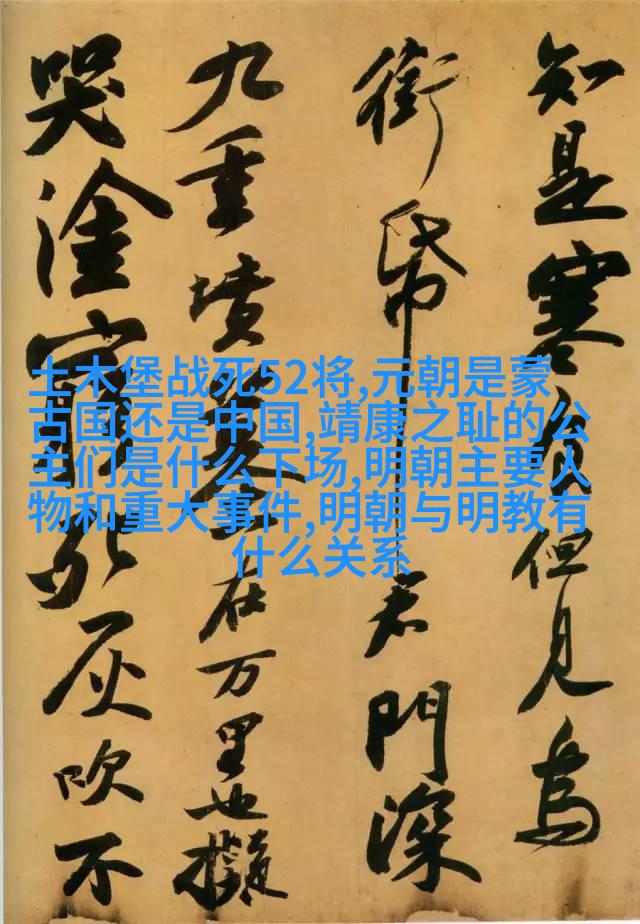 知是寒食但見烏
銜帋君門深
九重墳墓在万里也擬
哭塗窮死灰吹不
土木堡战死52将,元朝是蒙
古国还是中国,靖康之耻的公
主们是什么下场,明朝主要人
物和重大事件,明朝与明教有
什么关系